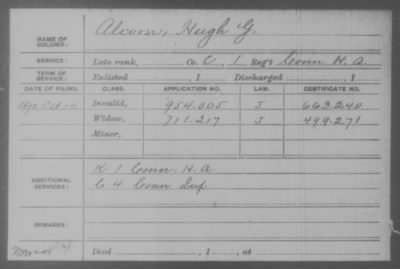 NAME OF SOLDIER: Alvord, Hugh G.
SERVICE: Late rank, Co. C, 1 Reg't Conn H. A.
TERM OF SERVICE: Enlisted , 1 Discharged , 1
DATE OF FILING. CLASS. APPLICATION NO. LAW. CERTIFICATE NO.
1890 Oct Invalid, 954.005 J 663.240
Widow, 711.217 J 499.271
Minor,
ADDITIONAL SERVICES: K 1 Conn. H. A.
C 4 Conn Inf.
REMARKS:
Died , 1 , at